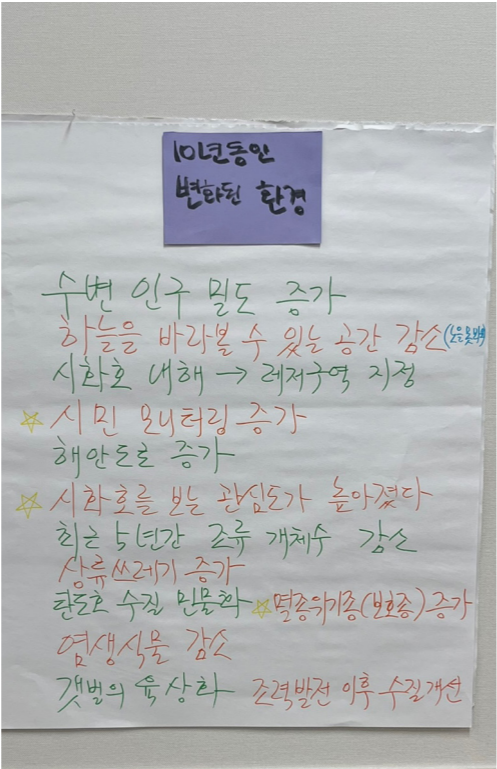 10년동안
변화된 환경
수변 인구 밀도 증가
하늘을 바라볼 수 있는 공간 감소 (노을못봐)
시화호 내해 → 레저구역 지정
☆ 시민 모니터링 증가
해안도로 증가
☆ 시화호를 보는 관심도가 높아졌다
최근 5년간 조류 개체수 감소
상류쓰레기 증가
탄도호 수질 민물화 ☆ 멸종위기종(보호종) 증가
염생식물 감소
갯벌의 육상화 조력발전 이후 수질개선